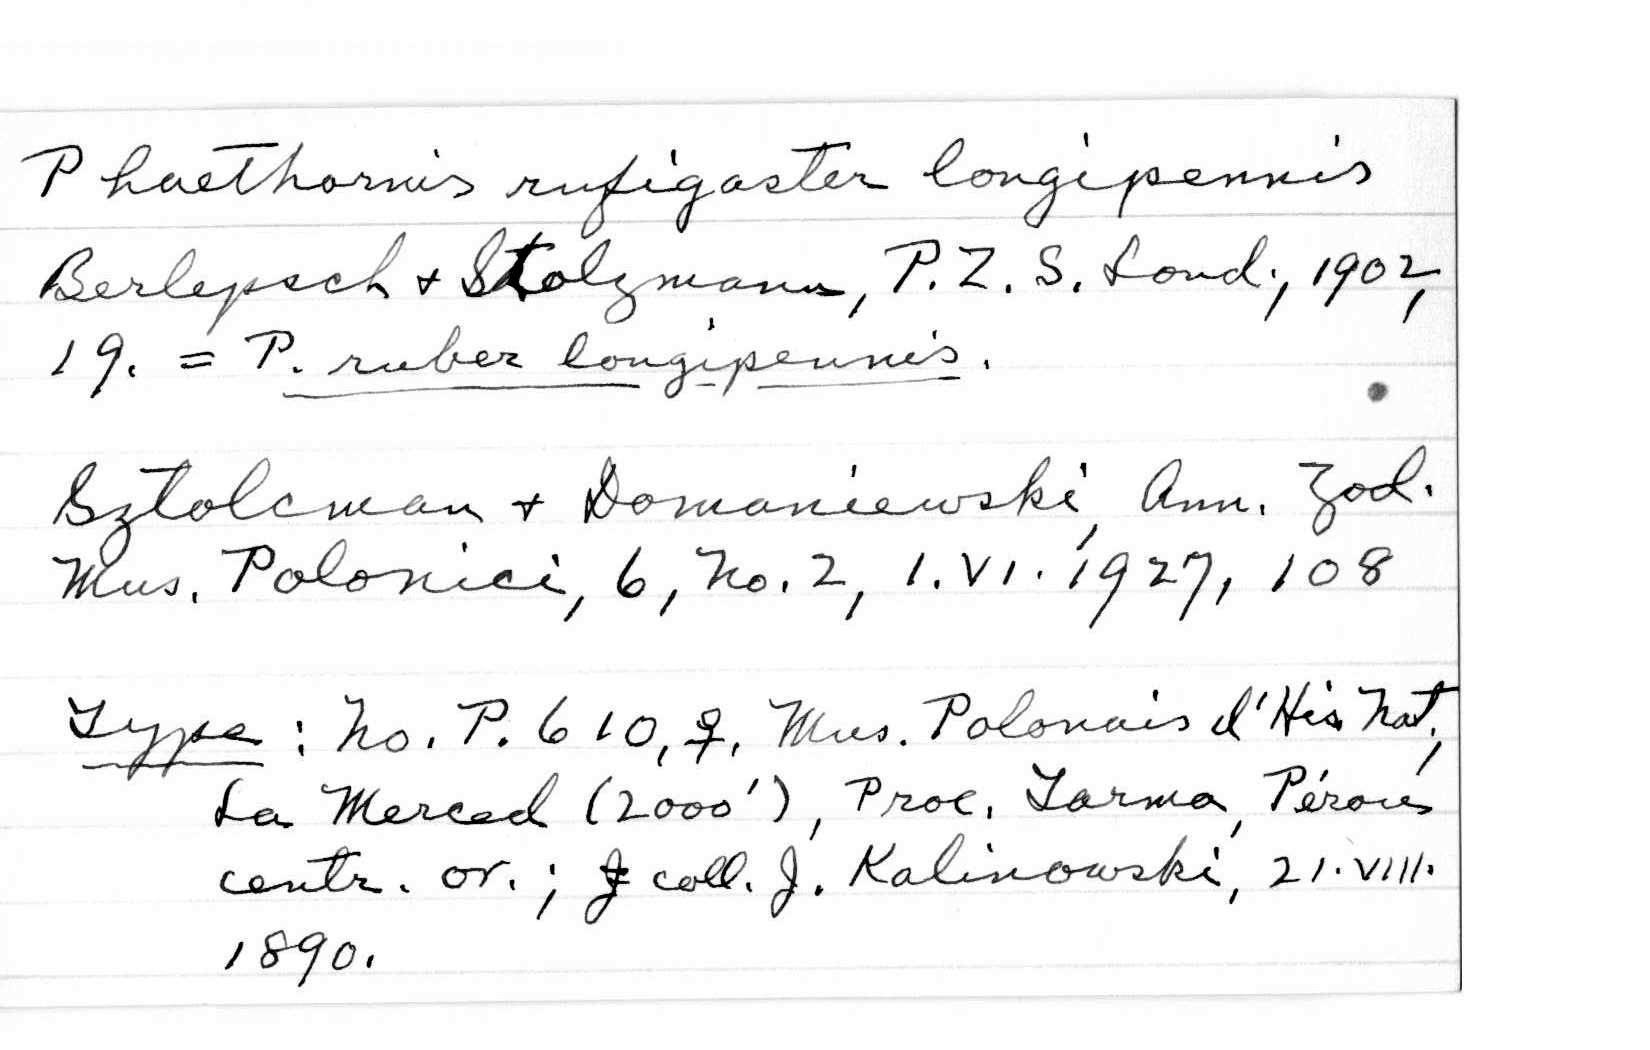 Phaethornis rufigaster longipennis
Berlepsch + Stolzmann, P. Z. S. Lond., 1902,
19. = P. ruber longipennis.
Sztolcman + Domaniewski, Ann. Zool.
Mus. Polonici, 6, No. 2, 1. VI. 1927, 108
Type: No. P. 610, ♀, Mus. Polonais d'His. Nat.,
La Merced (2000'), Prov. Tarma, Pérou
centr. or.; coll. J. Kalinowski, 21. VIII.
1890.